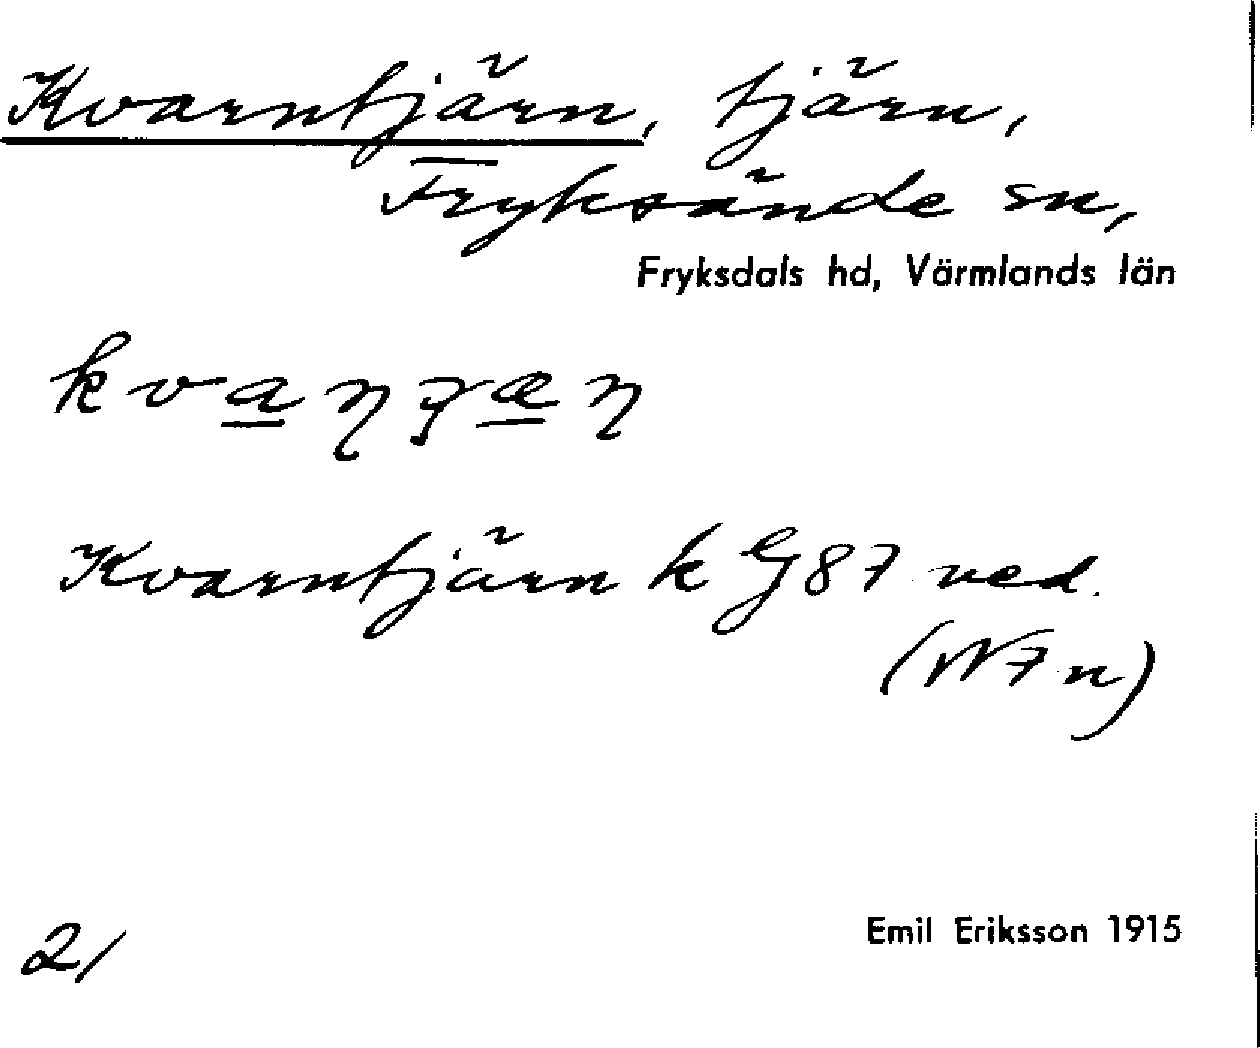 Kvarntjärn, tjärn,
Fryksände sn,
Fryksdals hd, Värmlands län
Kvarntjärn k G 87 ned.
(W 7 n)
2/
Emil Eriksson 1915